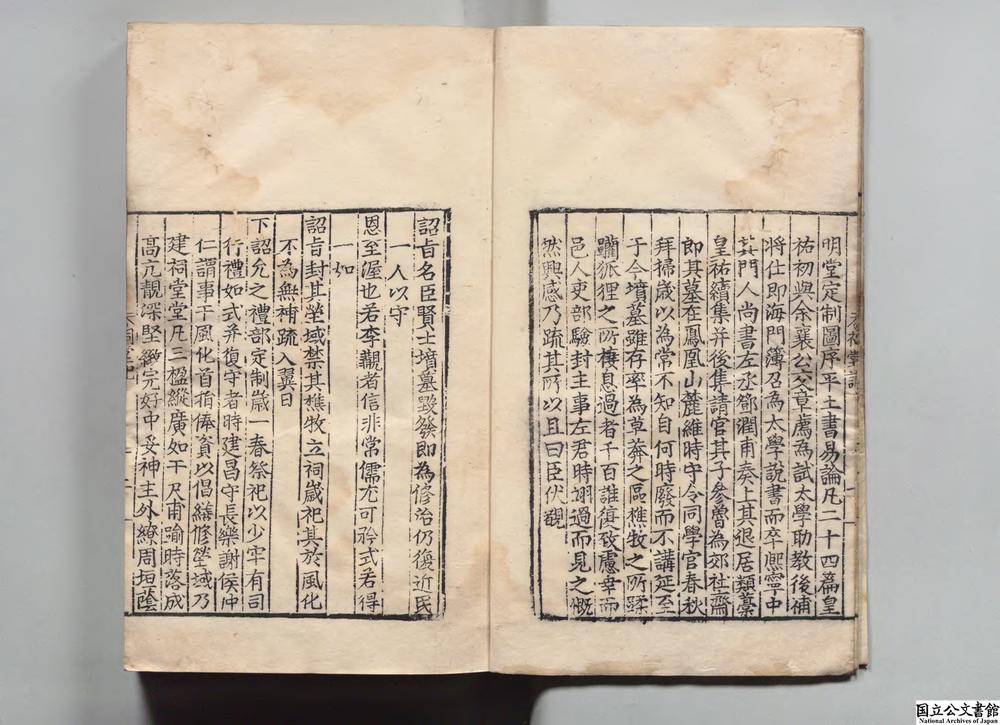 明堂定制圖序平土書易論凡二十四篇皇
祐初與余襄公交章薦為試太學助教後補
將仕郎海門薄召為太學說書而卒熈寧中
其門人尚書左氶鄧潤甫奏上其退居類藁
皇祐續集并後集請官其子參魯為郊社齋
郎其墓在鳳凰山麓維時守令同學官春秋
拜掃歲以為常不知自何時廢而不講延至
于今墳墓雖存卒為草莽之區樵牧之所蹂
躪狐狸之所棲息過者千百誰復致慮幸而
邑人吏部驗封主事左君時翊過而見之慨
然興感乃疏其所以且曰臣伏覩
詔旨名臣賢士墳墓毀發即為修治仍復近民
一人以守
恩至渥也若李覯者信非常儒尤可矜式若得
一如
詔旨封其塋域禁其樵牧立祠歲祀其於風化
不為無補疏入翼日
下詔允之禮部定制歲一春祭祀以少牢有司
行禮如式并復守者時建昌守長樂謝侯仲
仁謂事干風化首捐俸貲以倡繕修塋域乃
建祠堂堂凡三楹縱廣如干尺甫踰時落成
高亢靚深堅緻完好中妥神主外繚周垣蔭